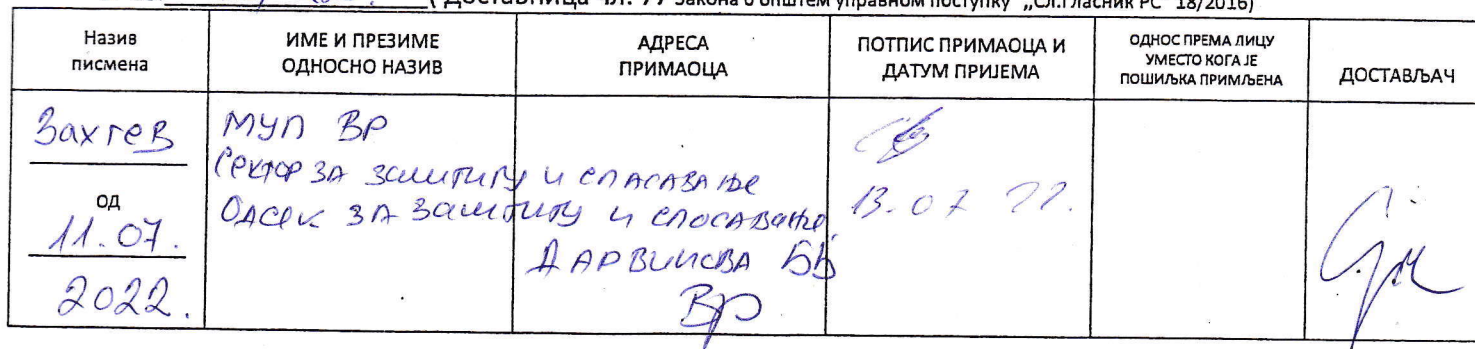 ( Доставница чл. 77 Закона о општем управном поступку "Сл.Гласник РС" 18/2016)
Назив писмена
ИМЕ И ПРЕЗИМЕ ОДНОСНО НАЗИВ
АДРЕСА ПРИМАОЦА
ПОТПИС ПРИМАОЦА И ДАТУМ ПРИЈЕМА
ОДНОС ПРЕМА ЛИЦУ УМЕСТО КОГА ЈЕ ПОШИЉКА ПРИМЉЕНА
ДОСТАВЉАЧ
Захтев
од
11.07.
2022.
МУП ВР
Сектор за заштиту и спасавање
Одсек за заштиту и спасавање
Дарвинова ББ
Вр
13.07 22.